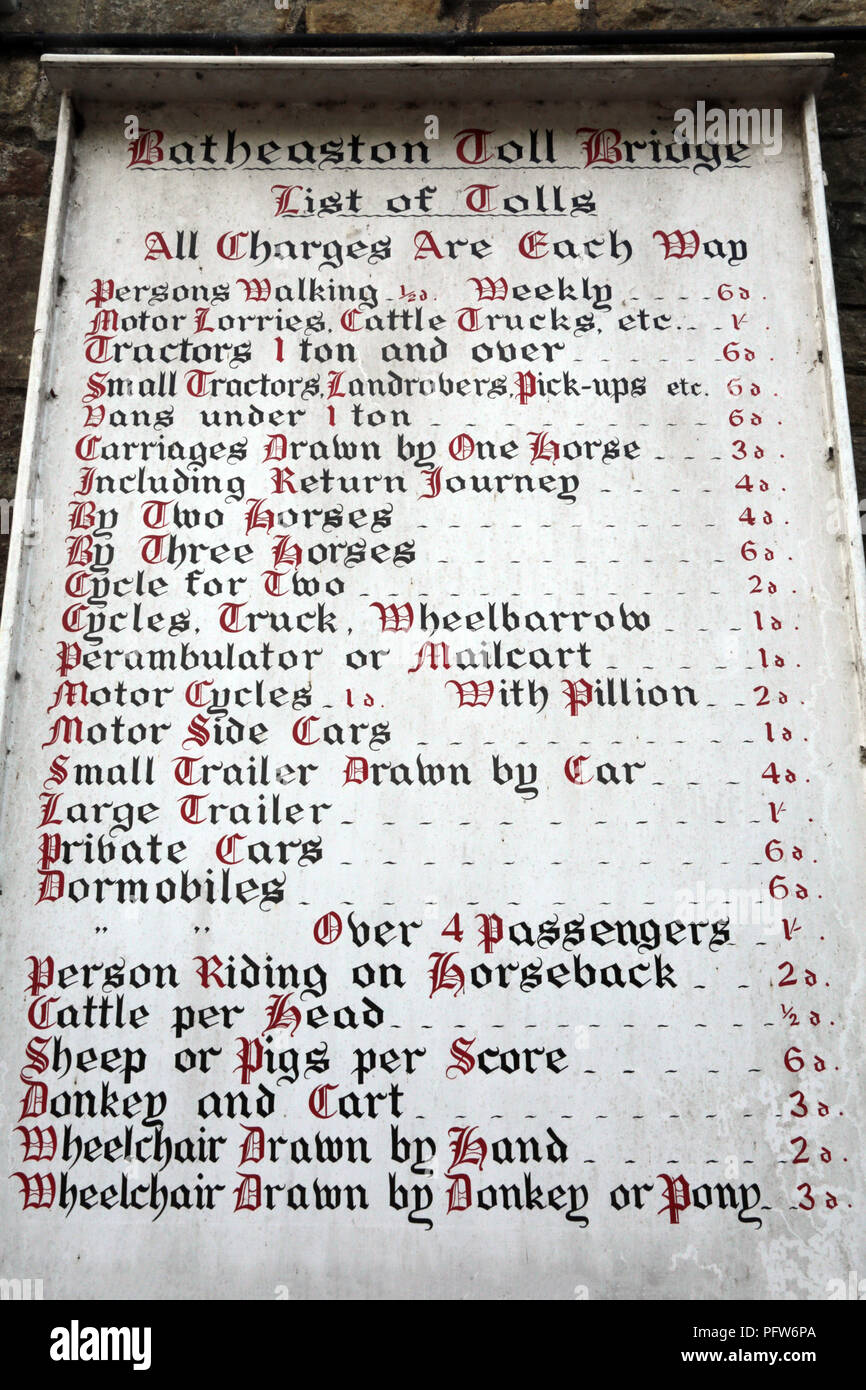 Batheaston Toll Bridge
List of Tolls
All Charges Are Each Way
Persons Walking ½d. Weekly 6d.
Motor Lorries, Cattle Trucks, etc. 1/-
Tractors 1 ton and over 6d.
Small Tractors, Landrovers, Pick-ups etc. 6d.
Vans under 1 ton 6d.
Carriages Drawn by One Horse 3d.
Including Return Journey 4d.
By Two Horses 4d.
By Three Horses 6d.
Cycle for Two 2d.
Cycles, Truck, Wheelbarrow 1d.
Perambulator or Mailcart 1d.
Motor Cycles 1d. With Pillion 2d.
Motor Side Cars 1d.
Small Trailer Drawn by Car 4d.
Large Trailer 1/-
Private Cars 6d.
Dormobiles 6d.
" " Over 4 Passengers 1/-
Person Riding on Horseback 2d.
Cattle per Head ½d.
Sheep or Pigs per Score 6d.
Donkey and Cart 3d.
Wheelchair Drawn by Hand 2d.
Wheelchair Drawn by Donkey or Pony 3d.
alamy
alamy
Image ID: PFW6PA
www.alamy.com